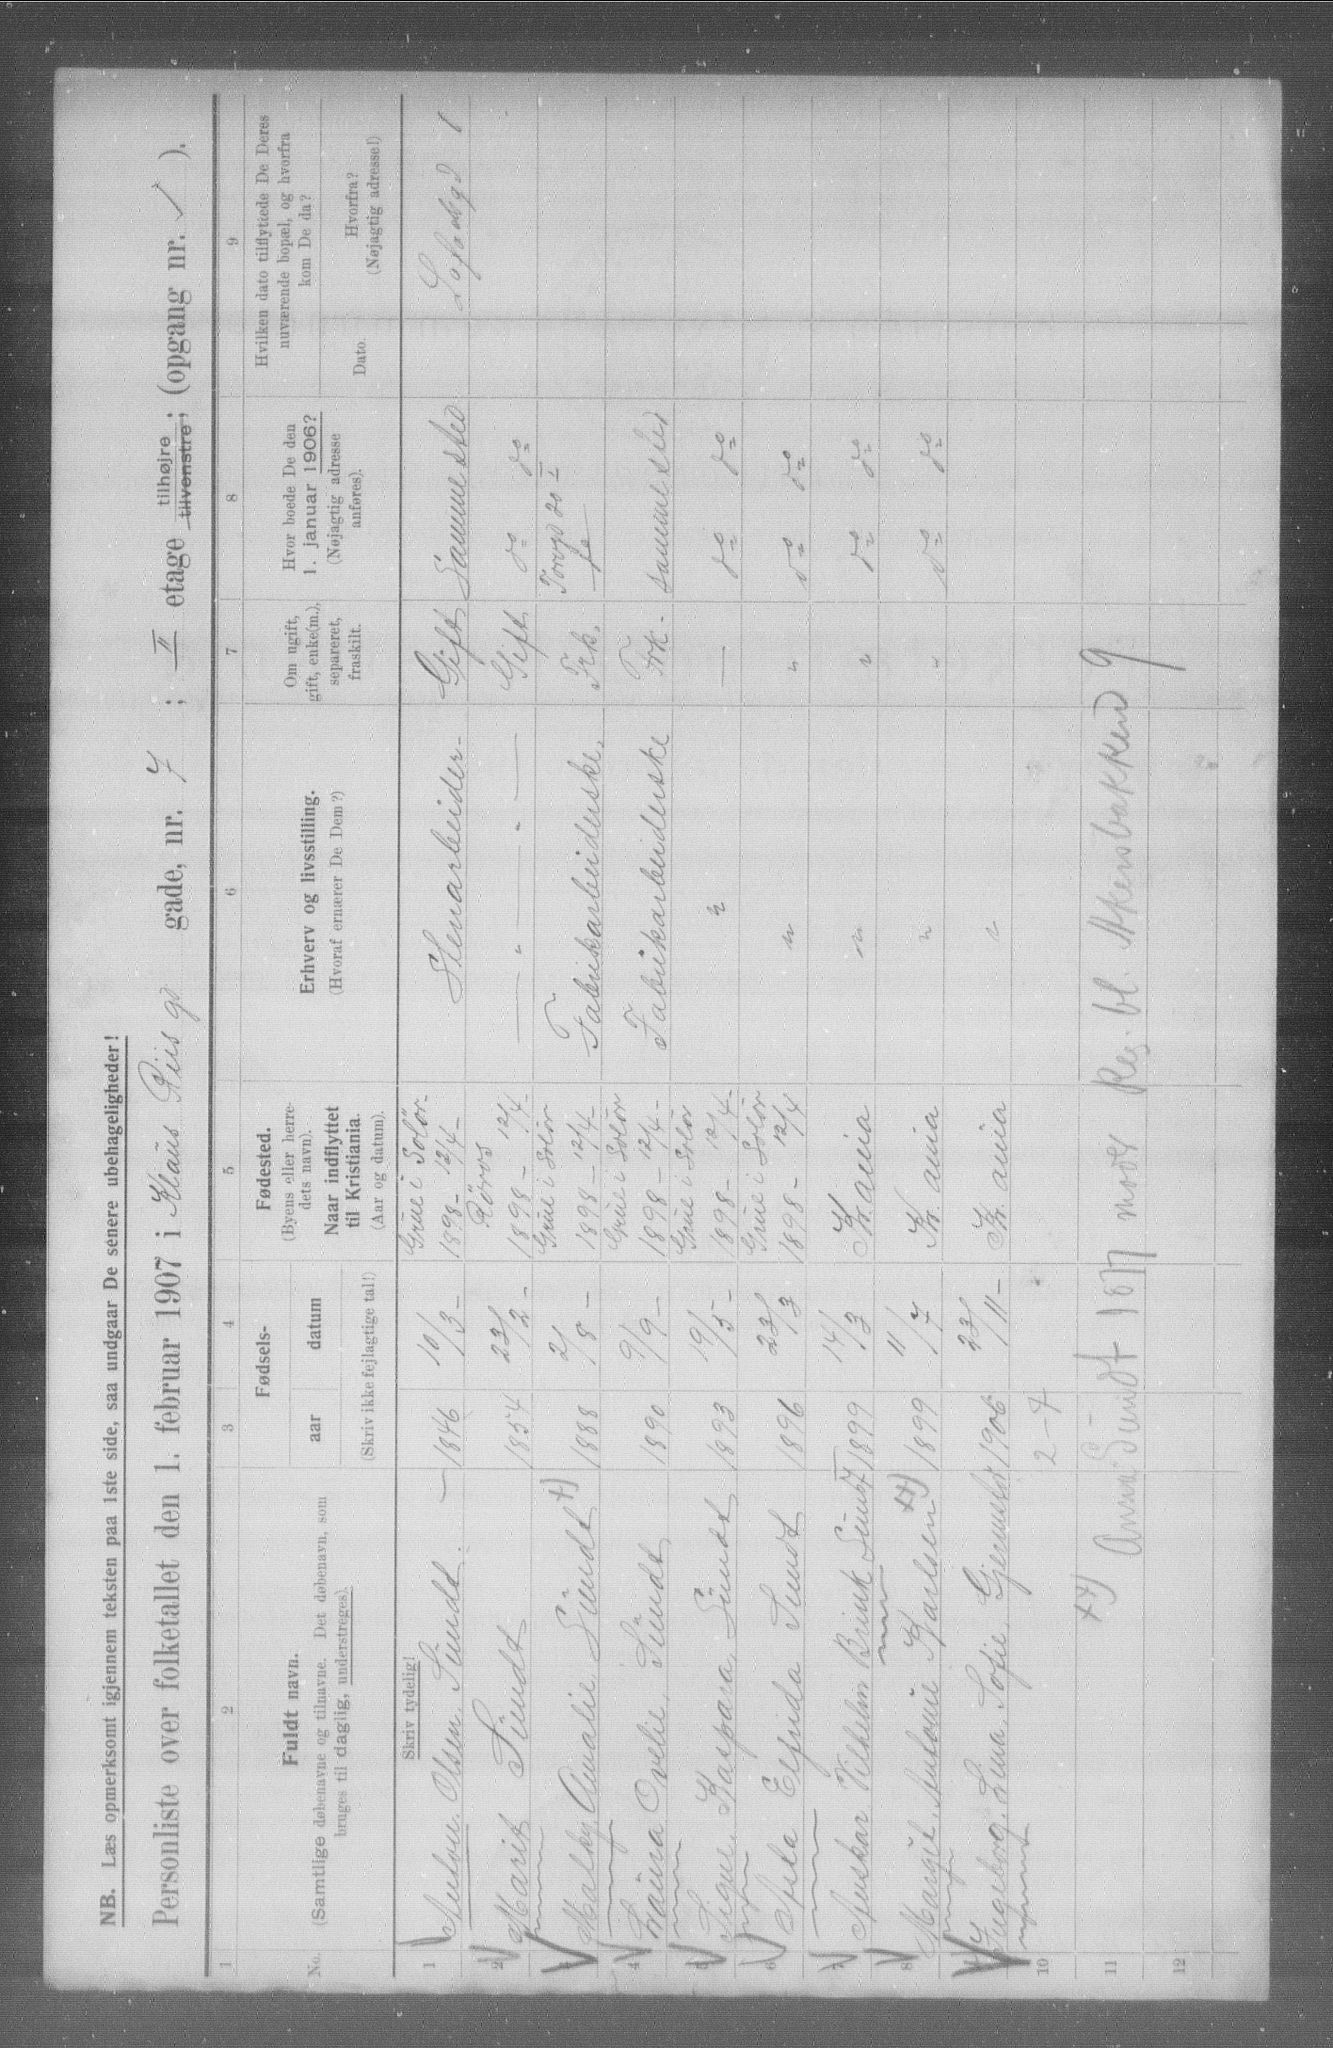 NB. Læs opmerksomt igjennem teksten paa 1ste side, saa undgaar De senere ubehageligheder!
Personliste over folketallet den 1. februar 1907 i Klaus Riis gd gade, nr. 7 ; II etage tilhøjre tilvenstre; (opgang nr. ✓ ).
1 2 3 4 5 6 7 8 9
No.
Fuldt navn.
(Samtlige døbenavne og tilnavne. Det døbenavn, som
bruges til daglig, understreges).
Fødsels-
aar datum
(Skriv ikke fejlagtige tal!)
Fødested.
(Byens eller herre-
dets navn).
Naar indflyttet
til Kristiania.
(Aar og datum).
Erhverv og livsstilling.
(Hvoraf ernærer De Dem?)
Om ugift,
gift, enke(m.),
separeret,
fraskilt.
Hvor boede De den
1. januar 1906?
(Nøjagtig adresse
anføres).
Hvilken dato tilflyttede De Deres
nuværende bopæl, og hvorfra
kom De da?
Dato.
Hvorfra?
(Nøjagtig adresse!)
Skriv tydelig!
1 Anton Olsen Sundt. — 1846 10/3 – Grue i Solør- 1898 - 12/4 – Stenarbeider- Gift Sammested
2 Marit Sundt 1854 23/2 – Røros 1898 – 12/4 – — " — " — Gift do do
3 Amalie Sundt +) 1888 2/8 – Grue i Solør 1898 – 12/4 – Fabrikarbeiderske. Frk. Torvgd 20 I
4 Laura Ovelie Sundt 1890 9/9 – Grue i Solør 1898 – 12/4 – Fabrikarbeiderske Frk. sammested
5 Signe Kaspara Sundt 1893 19/5 – Grue i Solør 1898 – 12/4 – " — do do
6 Elfrida Sundt 1896 23/3 Grue i Solør 1898 – 12/4 " " do do
7 Vilhelm Sundt 1899 14/3 Kr.ania " " do do
8 Margit Antonie Karlsen ++) 1899 11/7 Kr.ania " " do do
Ingeborg Lina Sofie 1906 23/11 – Kr.ania "
10 2 – 7
11 ++) Anna Sundt 1877 mor Reg. bl. Akersbakken 9
12